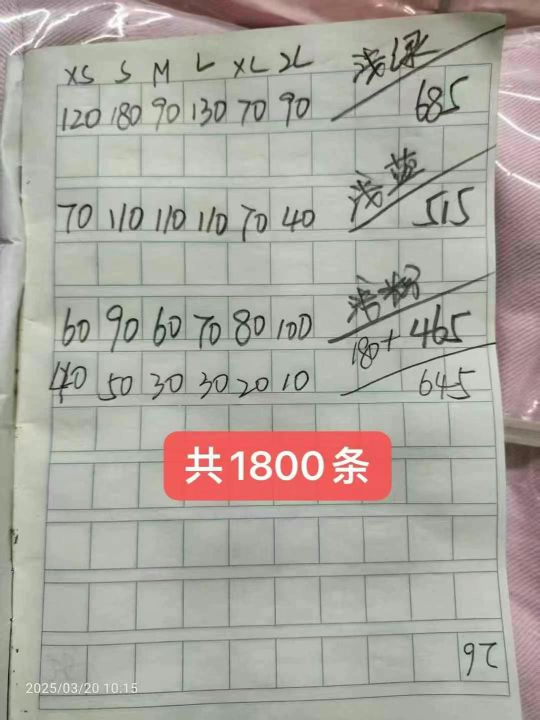 XS S M L XL 2L 浅绿
120 180 90 130 70 90 685
浅蓝
70 110 110 110 70 40 515
浅粉
60 90 60 70 80 100 465
40 50 30 30 20 10 180+ 645
共1800条
26
2025/03/20 10:15